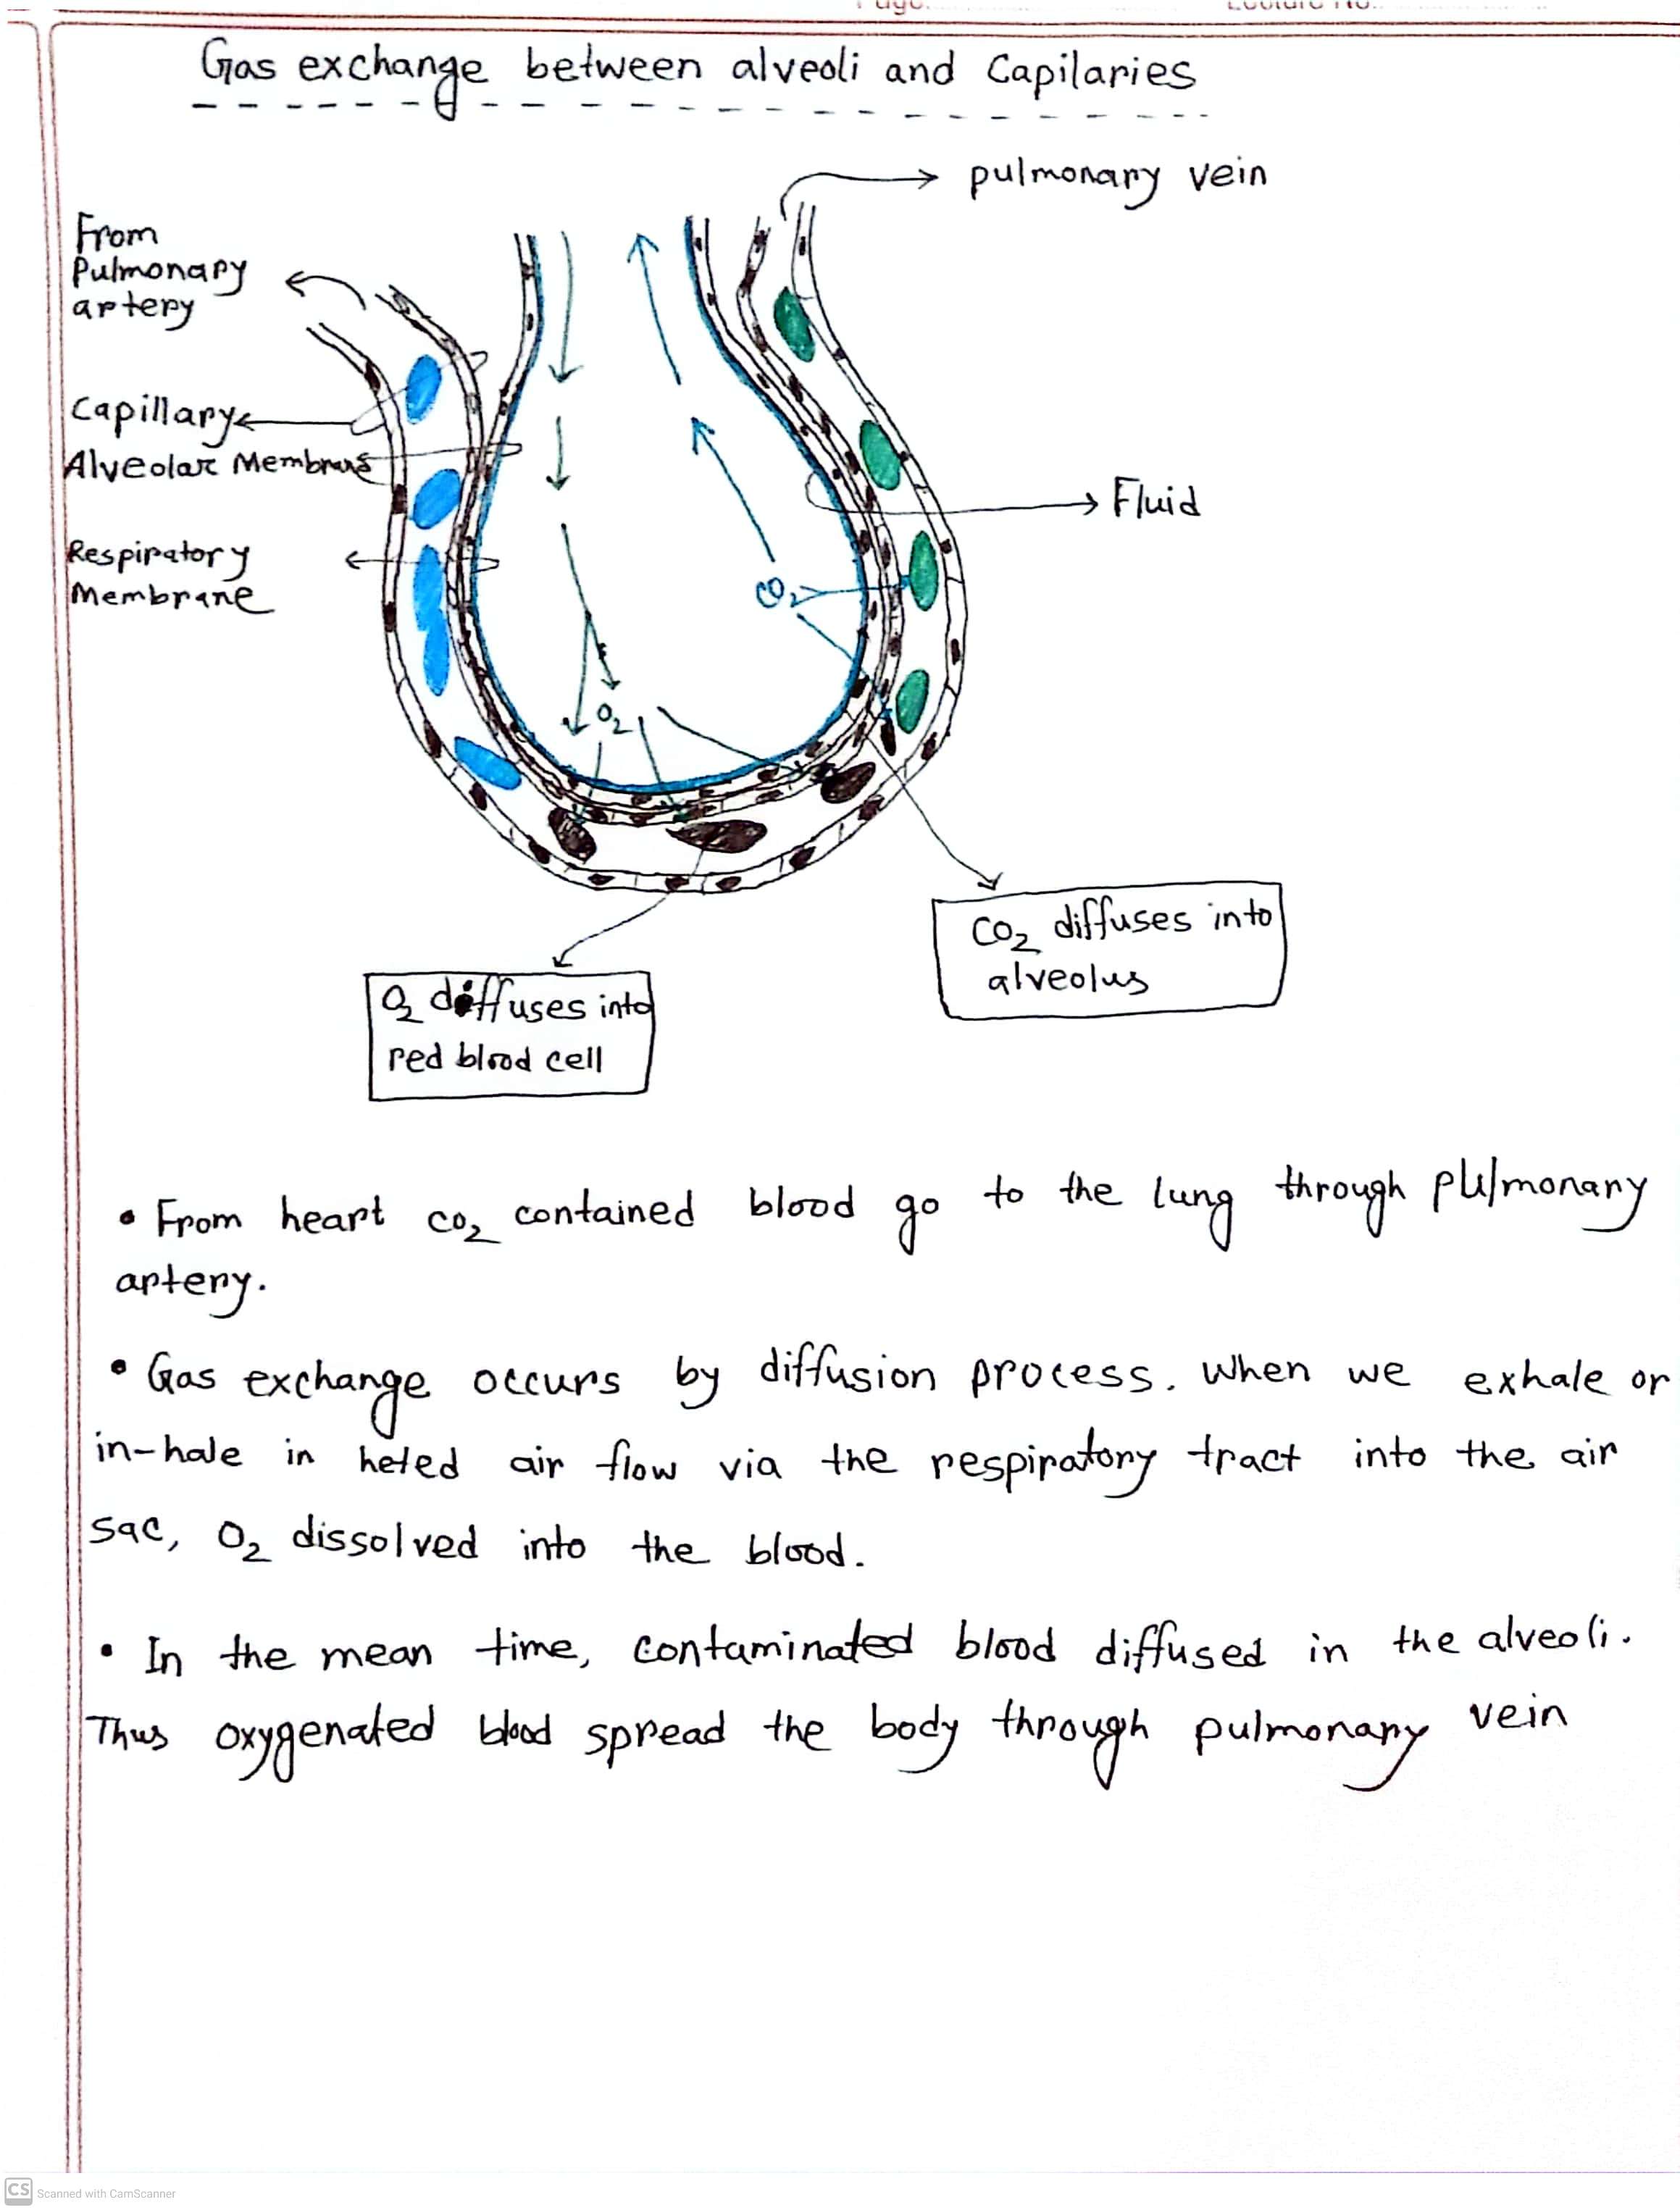 Gas exchange between alveoli and Capilaries
pulmonary vein
From
Pulmonary
artery
Capillary
Alveolar Membrane
Respiratory
Membrane
Fluid
CO2
O2
CO2 diffuses into
alveolus
O2 diffuses into
red blood cell
• From heart CO2 contained blood go to the lung through pulmonary
artery.
• Gas exchange occurs by diffusion process. When we exhale or
in-hale in heted air flow via the respiratory tract into the air
sac, O2 dissolved into the blood.
• In the mean time, contaminated blood diffused in the alveoli.
Thus oxygenated blood spread the body through pulmonary vein
CS Scanned with CamScanner